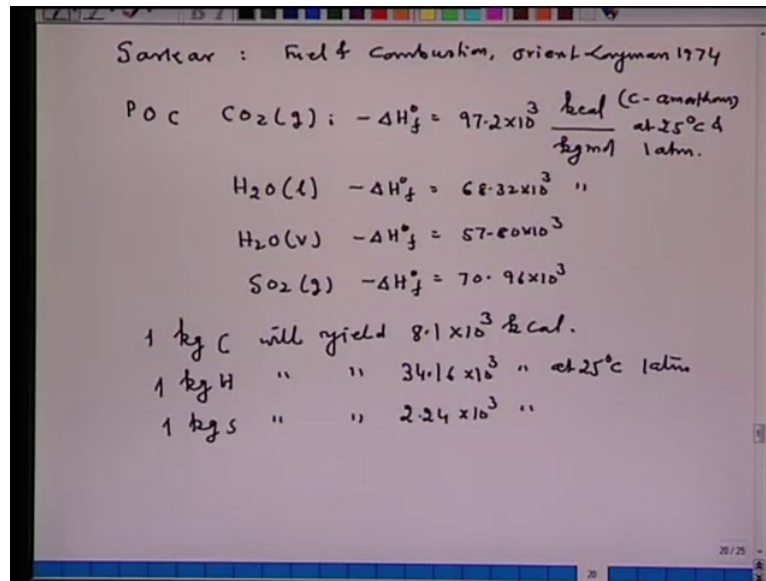 Sarkar : Fuel & Combustion, orient Longman 1974
POC CO2(g) : -ΔH°f = 97.2x10^3 kcal/kgmol (C-amorphous) at 25°C & 1 atm.
H2O(l) -ΔH°f = 68.32x10^3 "
H2O(v) -ΔH°f = 57.80x10^3
SO2(g) -ΔH°f = 70.96x10^3
1 kg C will yield 8.1x10^3 kcal.
1 kg H " " 34.16x10^3 " at 25°C 1atm
1 kg S " " 2.24x10^3 "
20/25
20